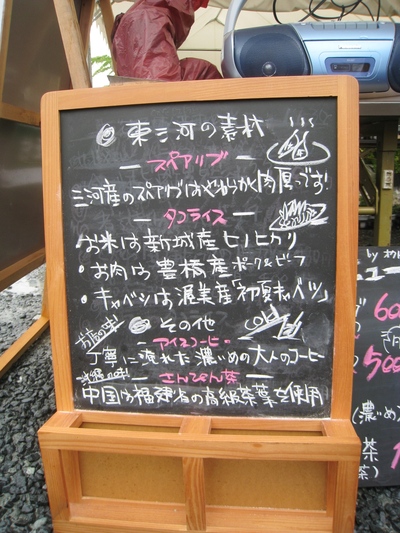 東三河の素材
スペアリブ
三河産のスペアリブはやわらかく肉厚です!
タコライス
お米は新城産ヒノヒカリ
・お肉は豊橋産ポーク&ビーフ
・キャベツは渥美産「初夏キャベツ」
お店の味!
その他
cold
アイスコーヒー
丁寧に淹れた濃いめの大人のコーヒー
さんぴん茶
中国は福建省の高級茶葉を使用
by
ニュー
600
500
(濃いめ)
茶
茶)